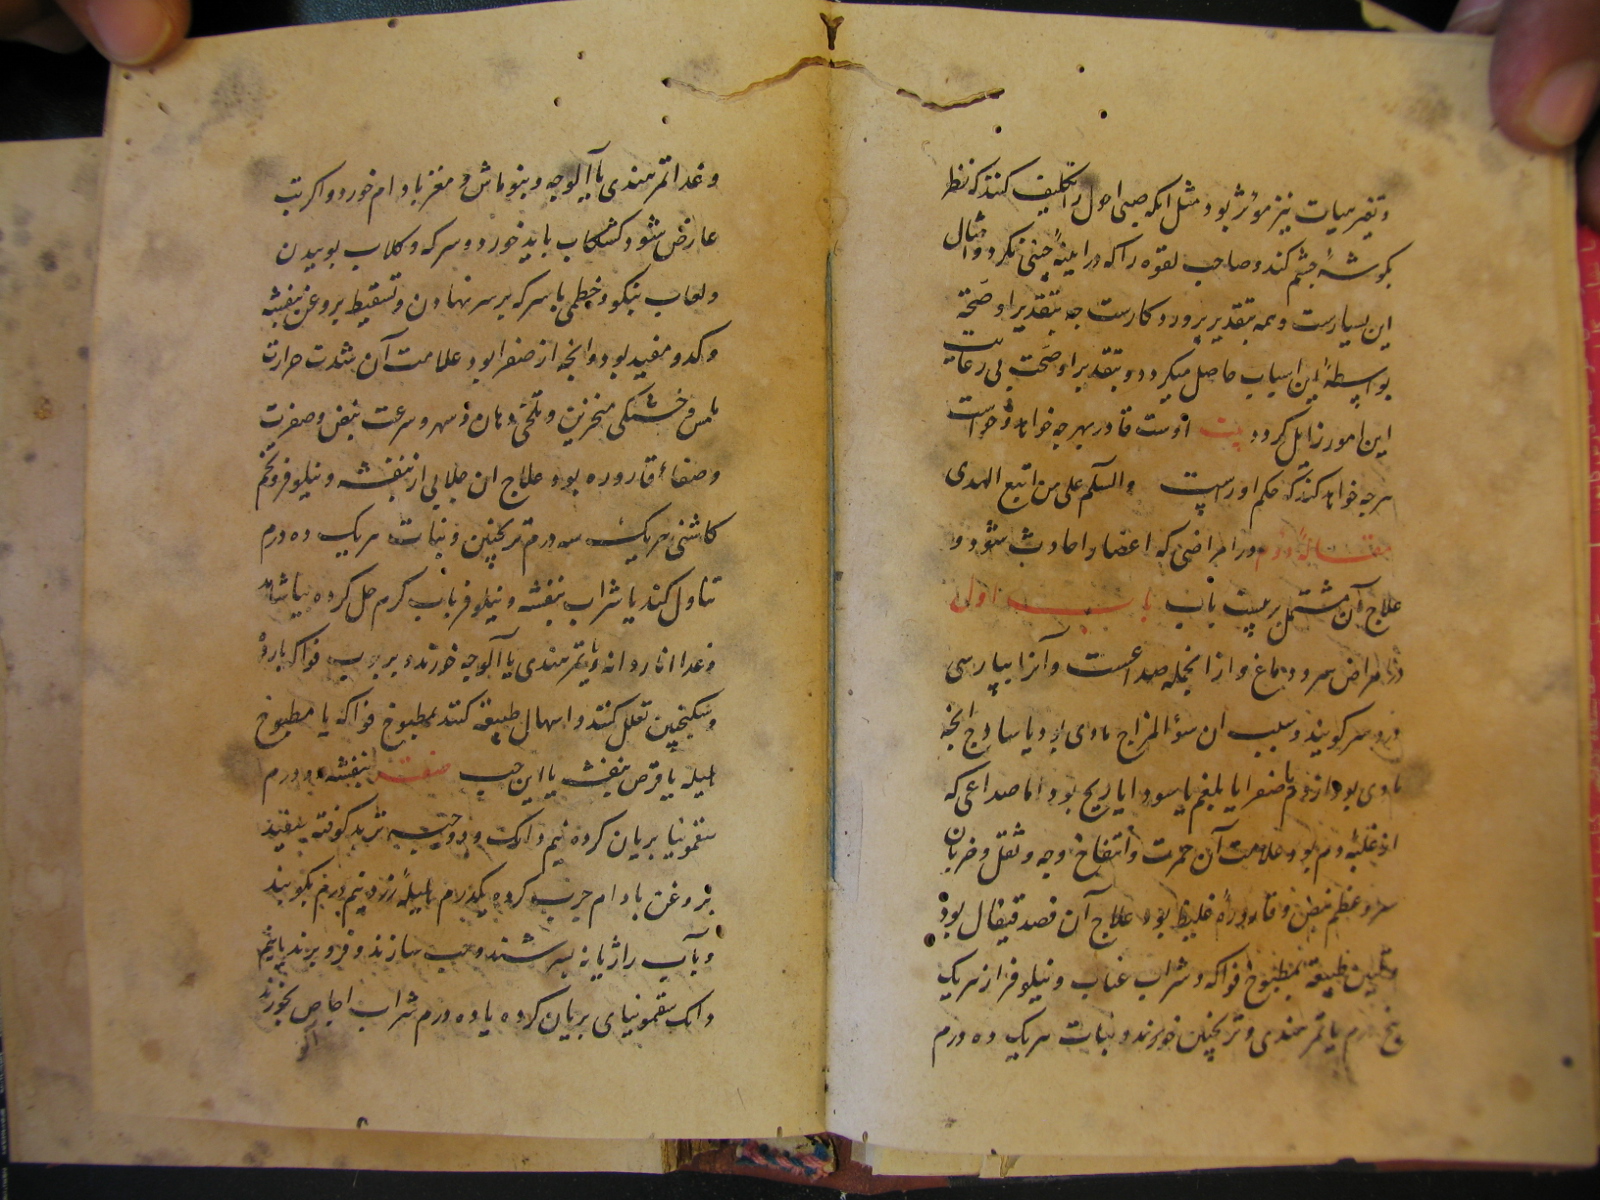 و تغیر هیات نیز موثر بود مثل آنکه صبی احول را تکلیف کنند که نظر
بکوشهٔ چشم کند و صاحب لقوه را که در آینهٔ چینی نکرد و امثال
این بسیارست و همه بتقدیر پروردکارست چه بتقدیر او صحة
بواسطهٔ این اسباب حاصل میکردد و بتقدیر او صحت بی رعایت
این امور زایل کردد بیت اوست قادر بهر چه خواهد و خواست
هر چه خواهد کند که حکم اوراست والسلم علی من اتبع الهدی
مقالهٔ دوم در امراضی که اعضا را حادث شود و
علاج آن مشتمل بر بیست باب باب اول
در امراض سر و دماغ و از انجمله صداعست و آنرا بپارسی
درد سر کویند و سبب ان سؤ المزاج مادی بود یا ساذج آنچه
مادی بود از دم یا صفرا یا بلغم یا سودا یا ریح بود اما صداعی که
از غلبهٔ دم بود علامت آن حمرت و انتفاخ وجه و ثقل و ضربان
سر و عظم نبض و قارورهٔ غلیظ بود علاج آن فصد قیفال بود
و تلیین طبیعة بمطبوخ فواکه و شراب عناب و نیلوفر از هریک
پنج درم یا تمر هندی و ترنجبین خورند و نبات هریک ده درم
و غذا تمر هندی یا آلوجه و بنوماش و مغز بادام خورد و اکر تب
عارض شود کشکاب باید خورد و سرکه و کلاب بوییدن
و لعاب بنکو و خطمی با سرکه بر سر نهادن و تسقیط بروغن بنفشه
و کدو مفید بود و آنچه از صفرا بود علامت آن شدت حرارت
ملمس و خشکی منخرین و تلخی دهان و سهر و سرعت نبض و صفرت
و صفاء قاروره بود علاج ان جلابی از بنفشه و نیلوفر و تخم
کاشنی هریک سه درم ترنجبین و نبات هریک ده درم
تناول کند یا شراب بنفشه و نیلوفر باب کرم حل کرده بیاشامد
و غذا انار دانه و یا تمر هندی یا آلوجه خورند و بر ربوب فواکه بارده
و سکنجبین تعلل کنند و اسهال طبیعة کنند بمطبوخ فواکه یا مطبوخ
هلیله یا قرص بنفشه یا این حب صفتش بنفشه دو درم
سقمونیا بریان کرده نیم دانک و دو حبه تربد کوفته سفید
بروغن بادام چرب کرده یکدرم هلیلهٔ زرد نیم درم بکوبند
و بآب رازیانه بسرشند و حب سازند و فرو برند یا نیم
دانک سقمونیای بریان کرده یا ده درم شراب اجاص بخورند